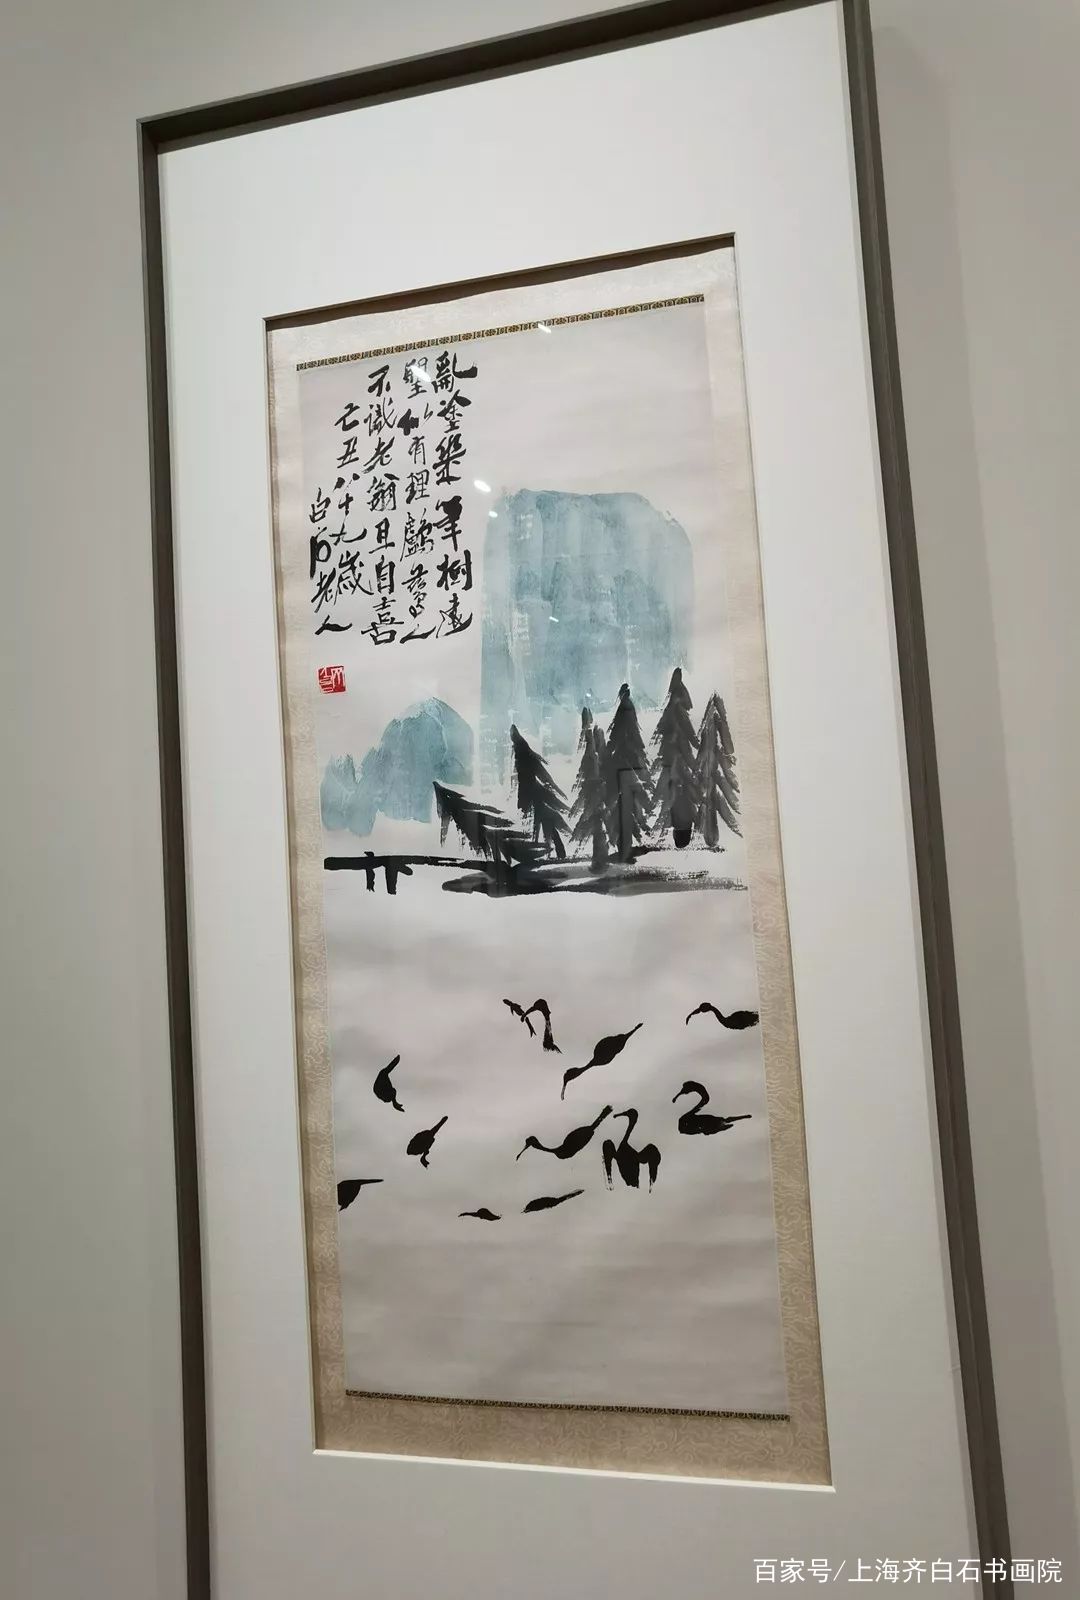 亂塗幾筆樹遠
望似有理鸕鷀人
不識老翁且自喜
己丑八十九歲
白石老人
百家号/上海齐白石书画院